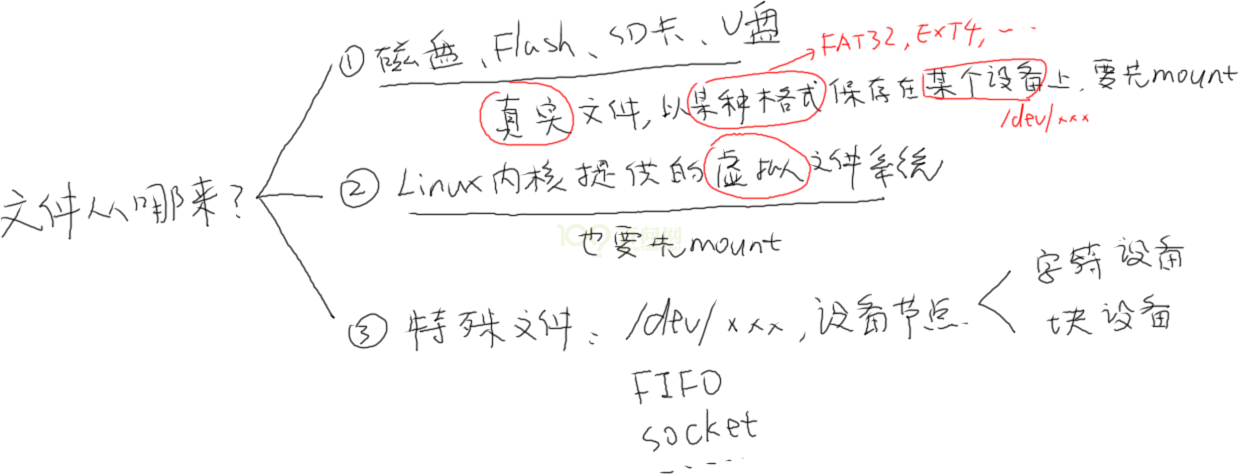 ① 磁盘、Flash、SD卡、U盘
FAT32, EXT4, ...
真实文件,以某种格式保存在某个设备上,要先mount
/dev/xxx
文件从哪来?
② Linux内核提供的虚拟文件系统
也要先mount
③ 特殊文件: /dev/xxx,设备节点
字符设备
块设备
FIFO
socket
......